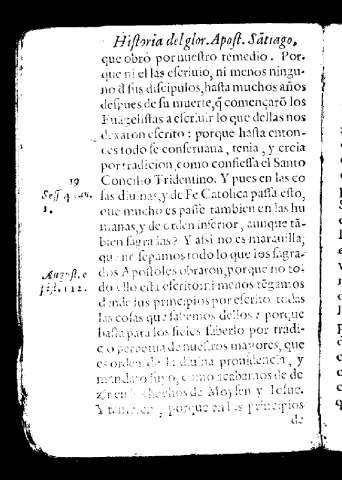 Historia del glor. Apost. Sãtiago,
que obró por nuestro remedio. Por-
que ni el las escriuio, ni menos ningu-
no d sus discipulos, hasta muchos años
despues de su muerte, q̃ començarõ los
Euãgelistas a escriuir lo que dellas nos
dexaron escrito: porque hasta enton-
ces todo se conseruaua, tenia, y creia
por tradicion, como confiessa el Santo
19
Concilio Tridentino. Y pues en las co
Sess. 4.
sas diuinas, y de Fe Catolica passa esto,
1.
que mucho es passe tambien en las hu
manas, y de orden inferior, aunque tã-
bien sagradas? Y assi no es marauilla,
que no sepamos todo lo que los sagra-
August. e
dos Apostoles obraron, porque no to-
pist. 112.
do ello està escrito: ni menos tẽgamos
desde sus principios por escrito todas
las cosas que sabemos dellos: porque
basta para los fieles saberlo por tradi-
c o perpetua de nuestros mayores, que
es orden de la diuina prouidencia, y
mandato suyo, como acabamos de de
zir en hechos de Moysen y Iosue.
Y tambien, porque en los principios
de